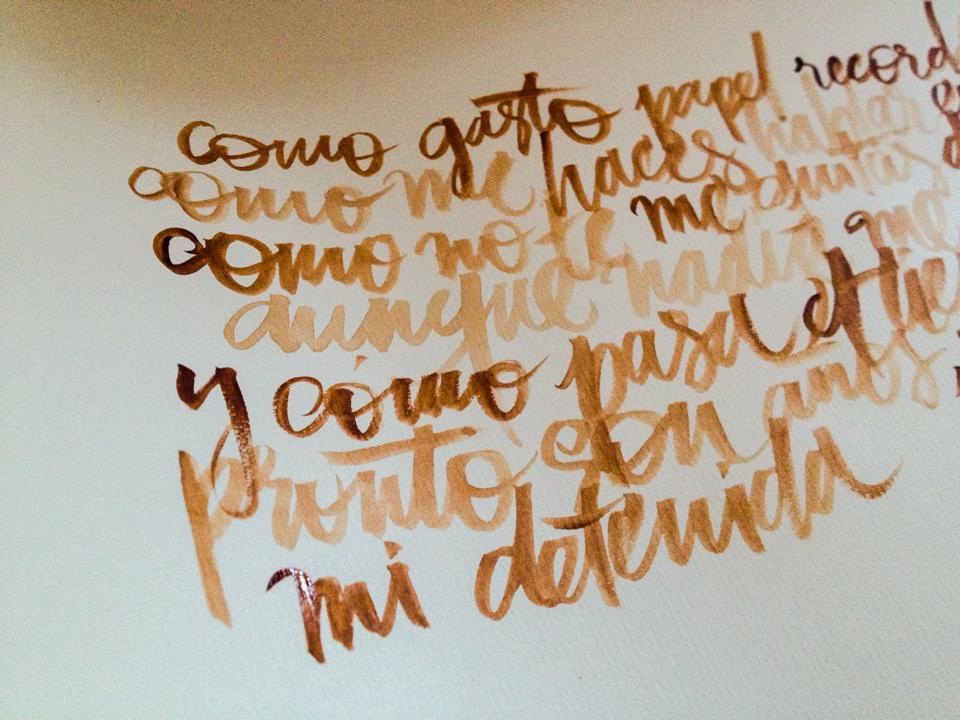 como gasto papel record
como me haces hablar
como no te me quitas
aunque nadie me
y cómo pasa el tie
pronto son años
mi detenida